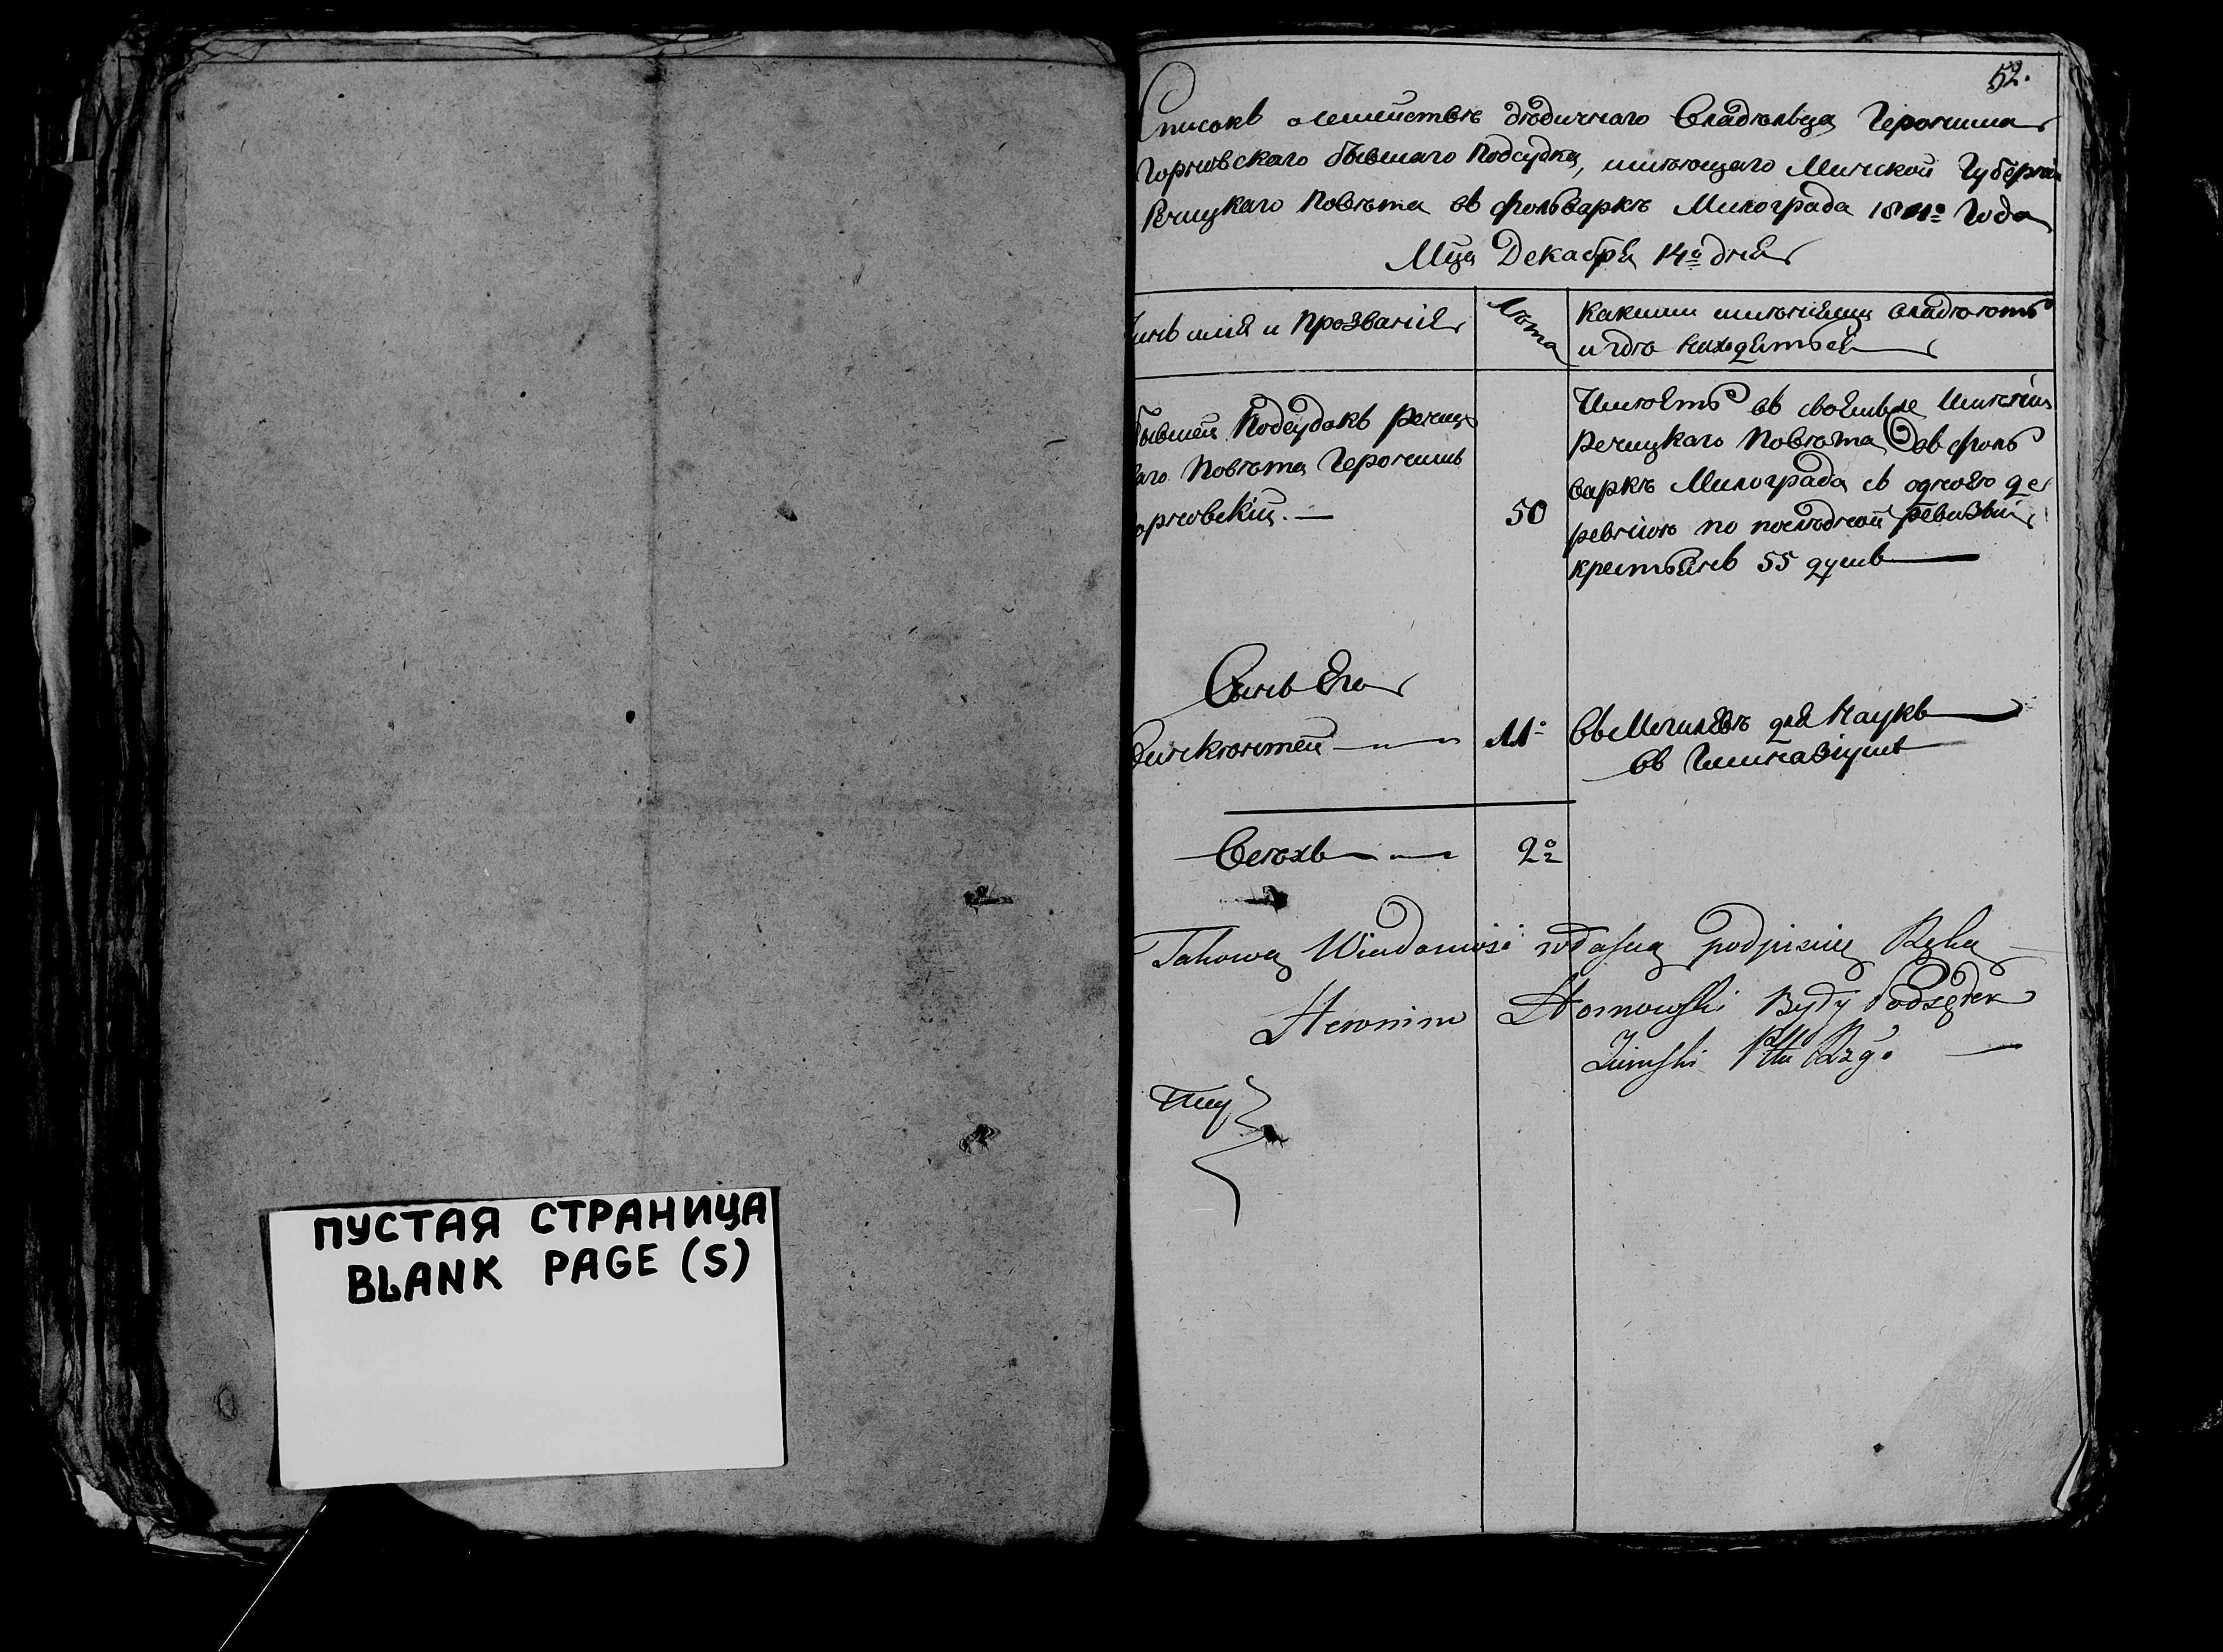 ПУСТАЯ СТРАНИЦА
BLANK PAGE (S)
52.
Списокъ о семействѣ дѣдичнаго Владѣльца Геронима
Горновскаго бывшаго Подсудка, имѣющаго Минской Губерніи
Речицкаго Повѣта въ фольваркѣ Милограда Года
Мца Декабря 14º дня
Чинъ имя и Прозваніе
Лѣта
Какими имѣніями владѣютъ
и гдѣ находятся
бывшей Подсудокъ Речиц
каго Повѣта Геронимъ
Горновскій. —
50
Имѣетъ въ своемъ Имѣніи
Речицкаго Повѣта въ фоль
варкѣ Милограда съ одною де
ревнею по послѣдной ревизіи
крестьянъ 55 душъ
Сынъ Его
Викентей
11
въ Могилевѣ для Наукъ
въ Гимназіумѣ
Всѣхъ
2
Takową Wiadomość własną podpisuię Ręką
Heronim Hornowski Były Podsędek
Ziemski Pttu Rzgo